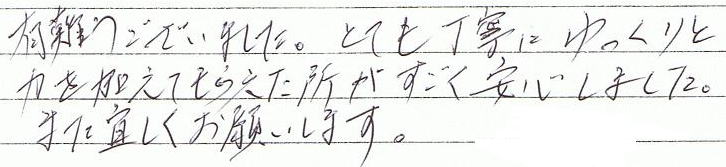 有難うございました。とても丁寧にゆっくりと
力を加えてもらえた所がすごく安心しました。
また宜しくお願いします。